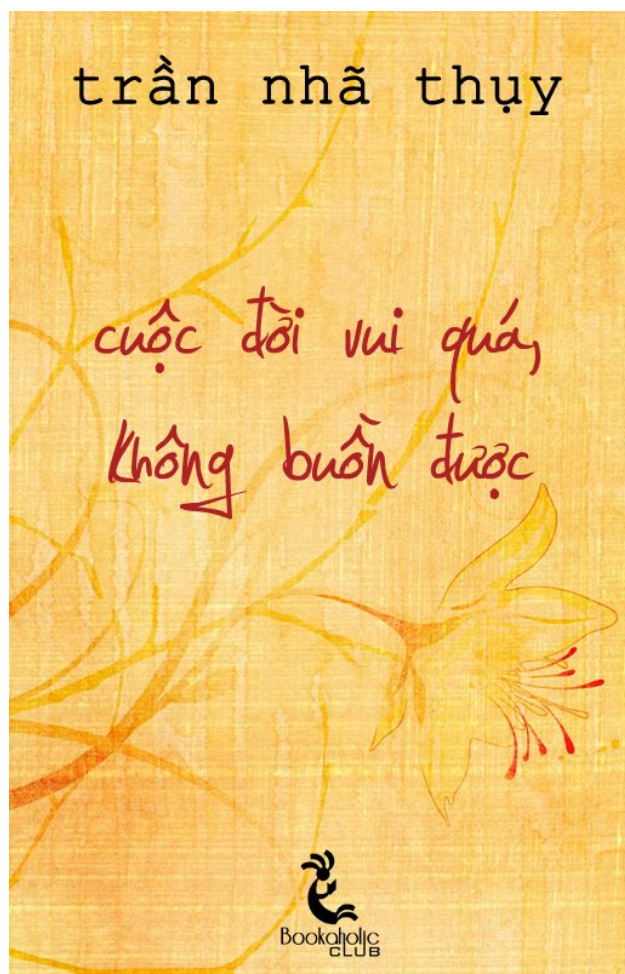 trần nhã thụy
cuộc đời vui quá,
không buồn được
Bookaholic
CLUB